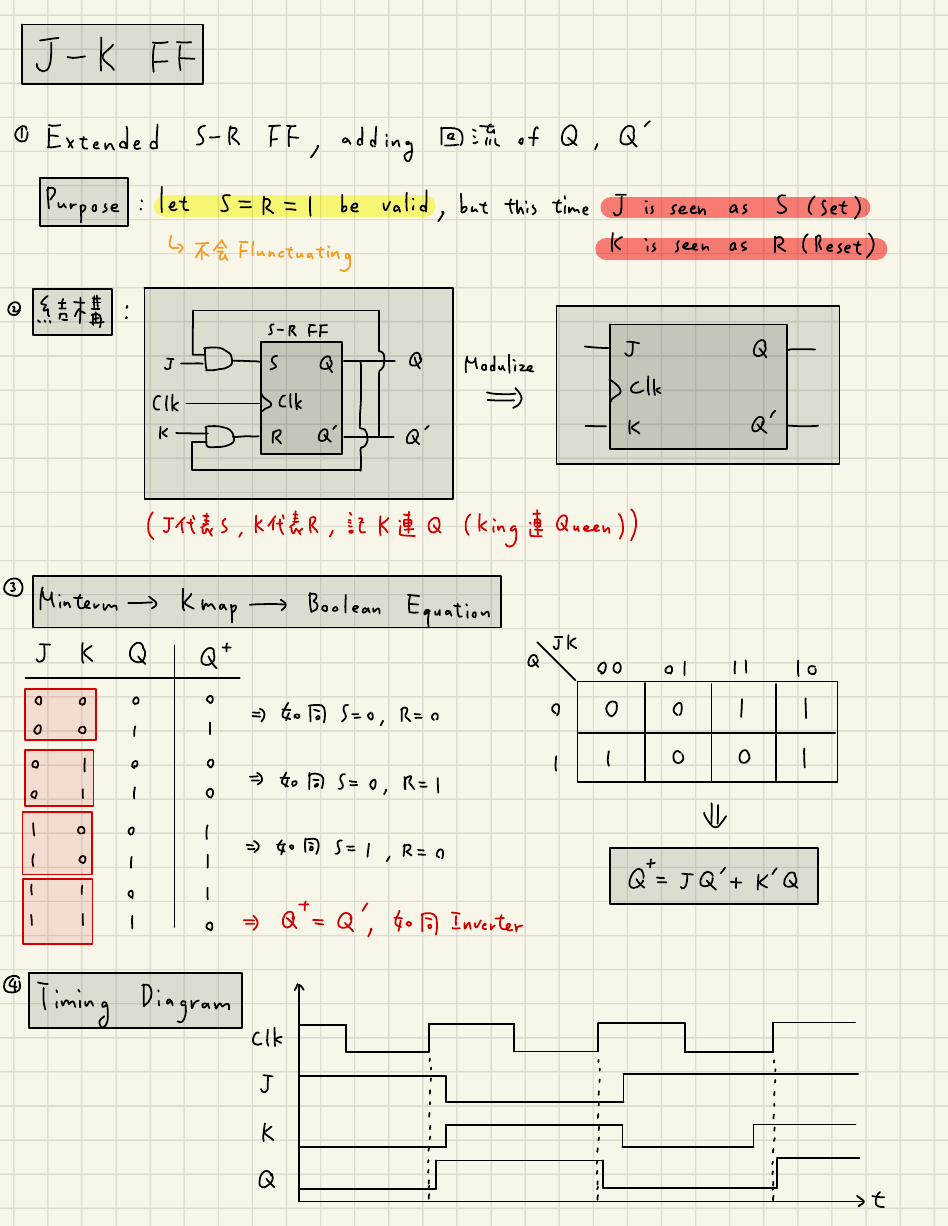 J-K FF
① Extended S-R FF, adding 回流 of Q, Q′
Purpose : let S=R=1 be valid, but this time J is seen as S (Set)
K is seen as R (Reset)
↳ 不会 Flunctuating
② 結構 :
S-R FF
J S Q Q
Clk Clk
K R Q′ Q′
Modulize
⇒
J Q
Clk
K Q′
(J代表S, K代表R, 記 K 連 Q (King 連 Queen))
③ Minterm → Kmap → Boolean Equation
J K Q Q⁺
0 0 0 0
0 0 1 1
⇒ 如同 S=0, R=0
0 1 0 0
0 1 1 0
⇒ 如同 S=0, R=1
1 0 0 1
1 0 1 1
⇒ 如同 S=1, R=0
1 1 0 1
1 1 1 0
⇒ Q⁺=Q′, 如同 Inverter
JK
Q 00 01 11 10
0 0 0 1 1
1 1 0 0 1
⇓
Q⁺=JQ′+K′Q
④ Timing Diagram
Clk
J
K
Q
t